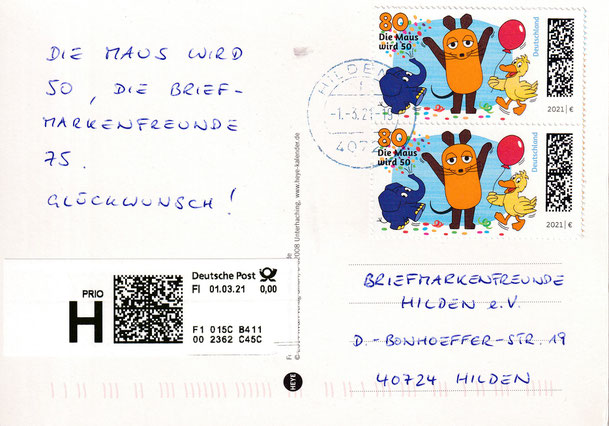 DIE MAUS WIRD
50, DIE BRIEF-
MARKENFREUNDE
75.
GLÜCKWUNSCH!
80
Die Maus
wird 50
Deutschland
2021 | €
80
Die Maus
wird 50
Deutschland
2021 | €
HILDEN
1
-1.-3.21-18
4072
2008 Unterhaching, www.heye-kalender.de
PRIO
H
Deutsche Post
FI 01.03.21 0,00
F1 015C B411
00 2362 C45C
HEYE
BRIEFMARKENFREUNDE
HILDEN e.V.
D.-BONHOEFFER-STR. 19
40724 HILDEN